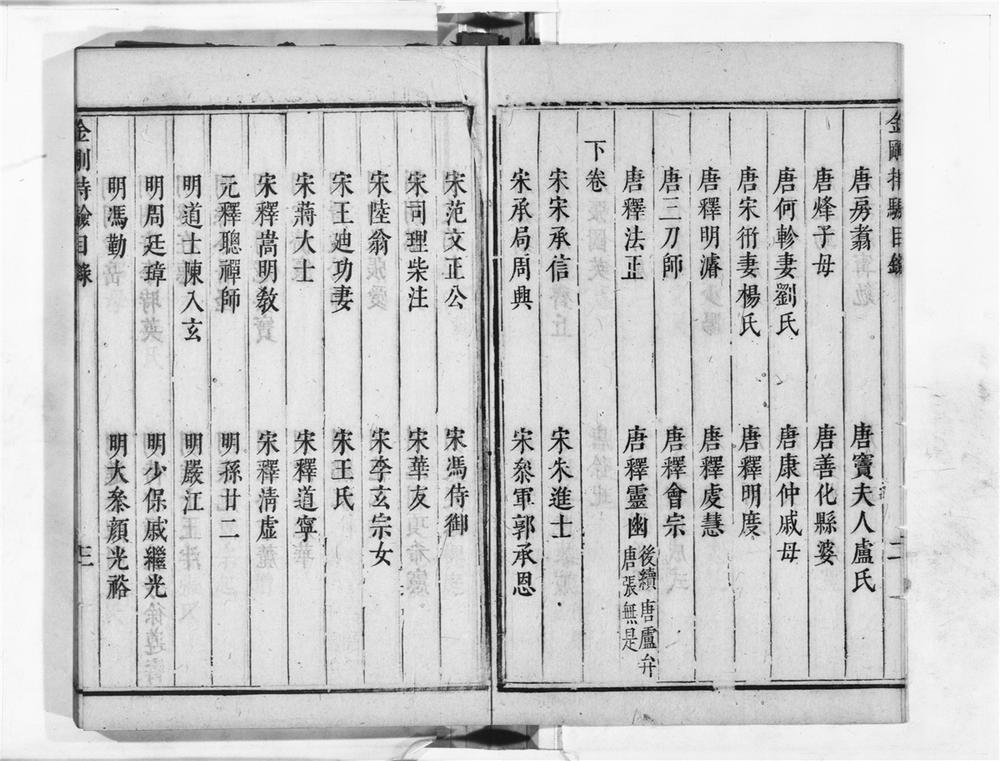 唐房翥　唐竇夫人盧氏
唐烽子母　唐善化縣婆
唐何軫妻劉氏　唐康仲戚母
唐宋衎妻楊氏　唐釋明度
唐釋明濬　唐釋處慧
唐三刀師　唐釋會宗
唐釋法正　唐釋靈幽　後續唐盧弁　唐張無是
下卷
宋宋承信　宋朱進士
宋承局周興　宋叅軍郭承恩
宋范文正公　宋馮侍御
宋司理柴注　宋華友
宋陸翁　宋李玄宗女
宋王廸功妻　宋王氏
宋蔣大士　宋釋道寧
宋釋嵩明教　宋釋清虛
元釋聰禪師　明孫廿二
明道士陳入玄　明嚴江
明周廷璋　明少保戚繼光
明馮勤　明大叅顏光裕